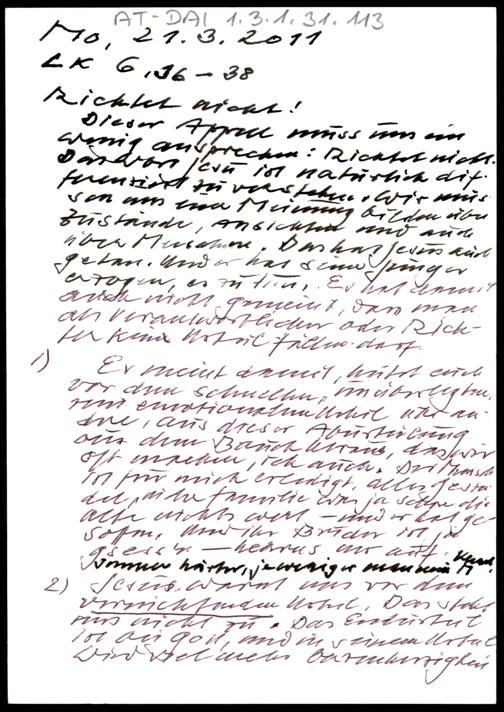 AT-DAI 1.3.1.31.113
Mo, 21.3.2011
LK 6,36-38
Richtet nicht!
Dieser Appell muss uns ein
wenig ansprechen: Richtet nicht.
Das Wort Jesu ist natürlich dif-
ferenziert zu verstehen. Wir müs-
sen uns eine Meinung bilden über
Zustände, Ansichten und auch
über Menschen. Das hat Jesus auch
getan. Und er hat seine Jünger
erzogen, es zu tun. Er hat damit
auch nicht gemeint, dass man
als Verantwortlicher oder Rich-
ter kein Urteil fällen darf.
1) Er meint damit, hütet euch
vor dem schnellen, unüberlegten,
rein emotionalen Urteil über an-
dere, aus dieser Aburteilung
aus dem Bauch heraus, das wir
oft machen, ich auch. Der Mensch
ist für mich erledigt, alles
in der Familie war ja schon die
alte nichts wert - und er hat ge-
soffen, und ihr Bruder ist ja
gsessn -
immer härter, je weniger man kennt.
2) Jesus warnt uns vor dem
vernichtenden Urteil. Das steht
uns nicht zu. Das Endurteil
ist bei Gott, und in seinem Urteil
wird viel mehr Barmherzigkeit